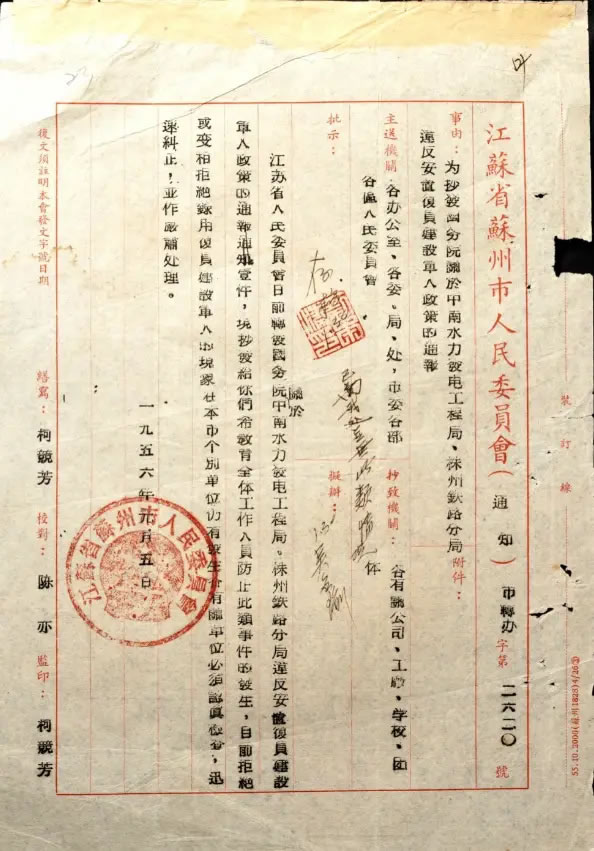 江蘇省蘇州市人民委員會（通知）市轉办字第二六二〇號
事由：为抄發國务院關於中南水力發电工程局、株州鉄路分局
違反安置復員建設軍人政策的通報
附件：
主送機關：各办公室、各委、局、处，市委各部
各區人民委員會
抄致機關：各有關公司、工廠、学校、団
体
批示：
擬辦：
江苏省人民委員會日前轉發國务院
關於
中南水力發电工程局、株州鉄路分局違反安置復員建設
軍人政策的通報通知壹件，現抄發給你們希教育全体工作人員防止此類事件的發生，目前拒絕
或变相拒絕錄用復員建設軍人的現象在本市个別單位仍有發生，有關單位必須認眞檢查，迅
速糾止！並作嚴肅处理。
一九五六年元月五日
江蘇省蘇州市人民委員會
復文須註明本會發文字號日期
繕寫：柯競芳
校對：陈亦
監印：柯競芳
裝訂線